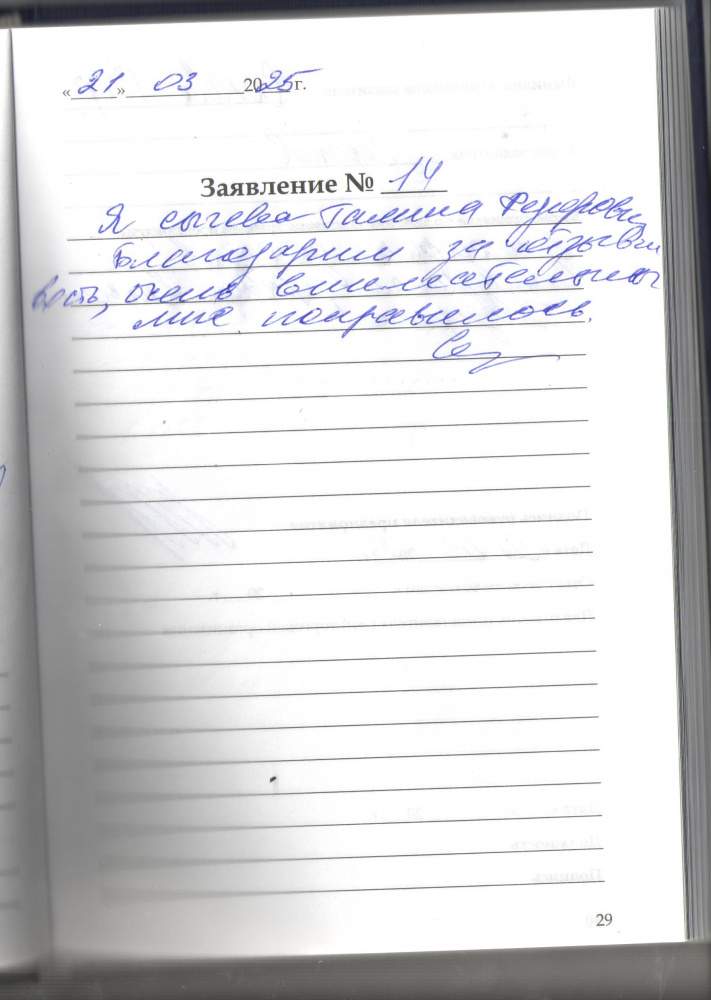 «21» 03 2025 г.
Заявление № 14
Я сычева Галина Федоровн
Благодарим за отзывчи
вость, очень внимательный
мне понравилось.
29